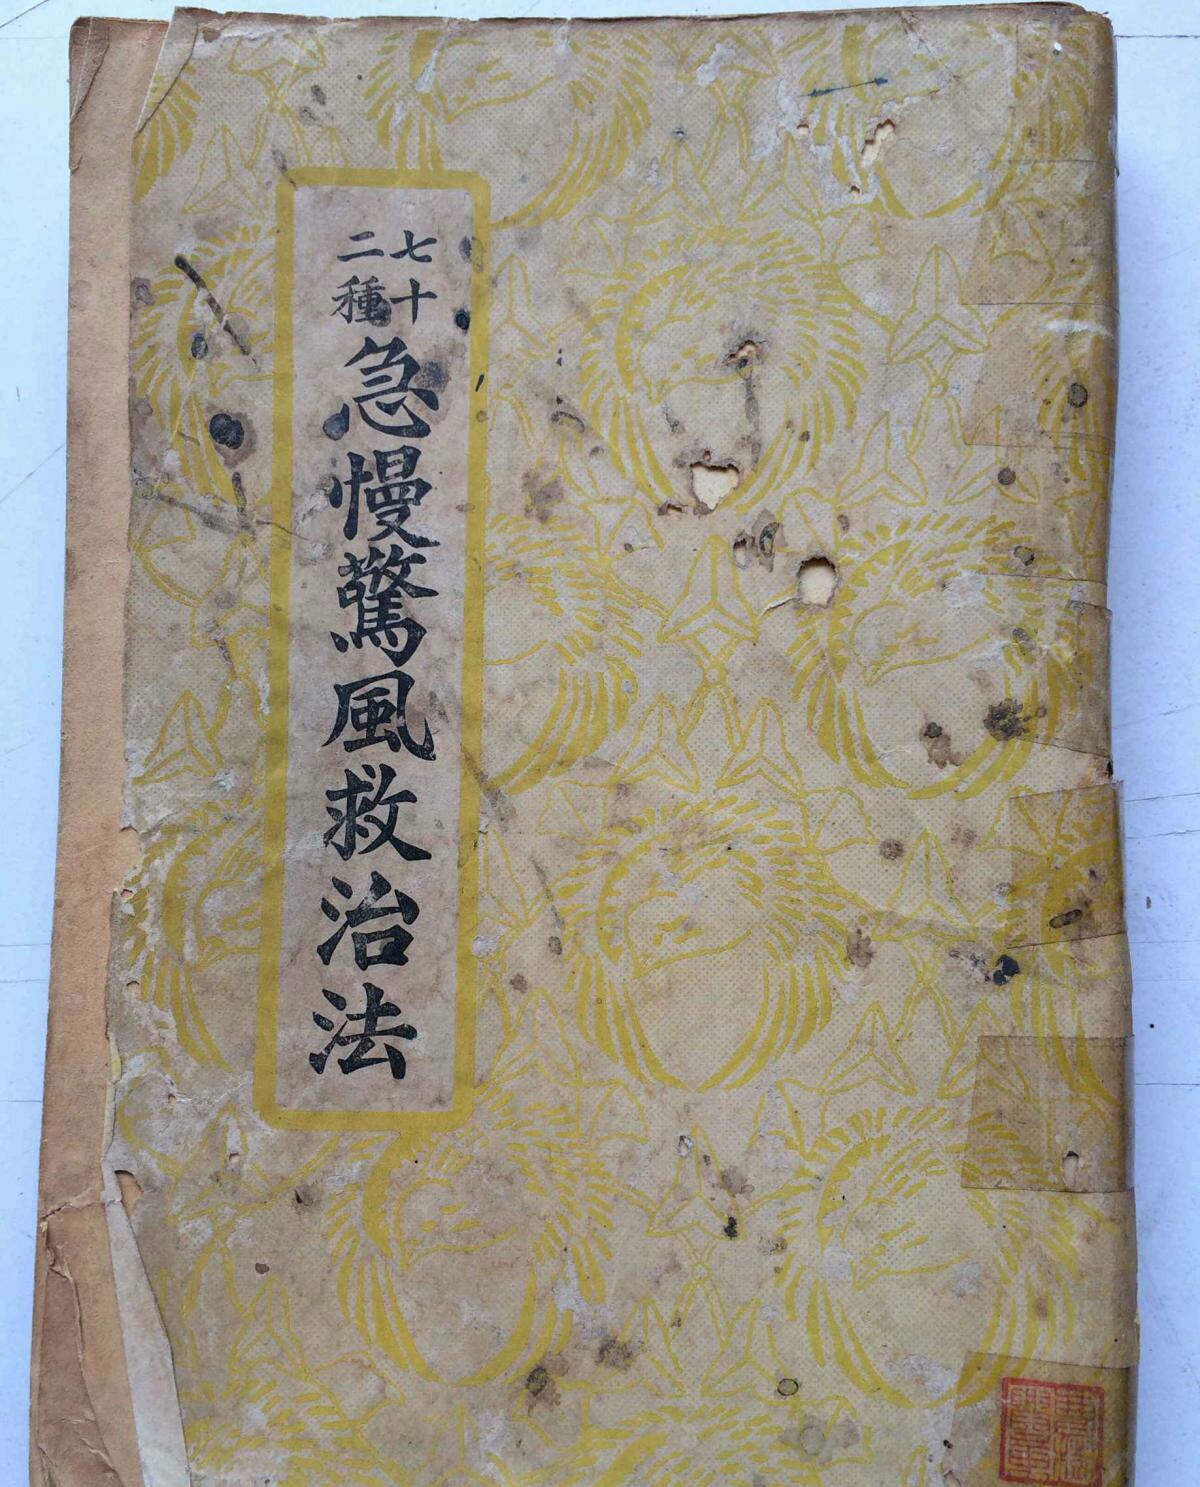 七十
二種
急慢驚風救治法